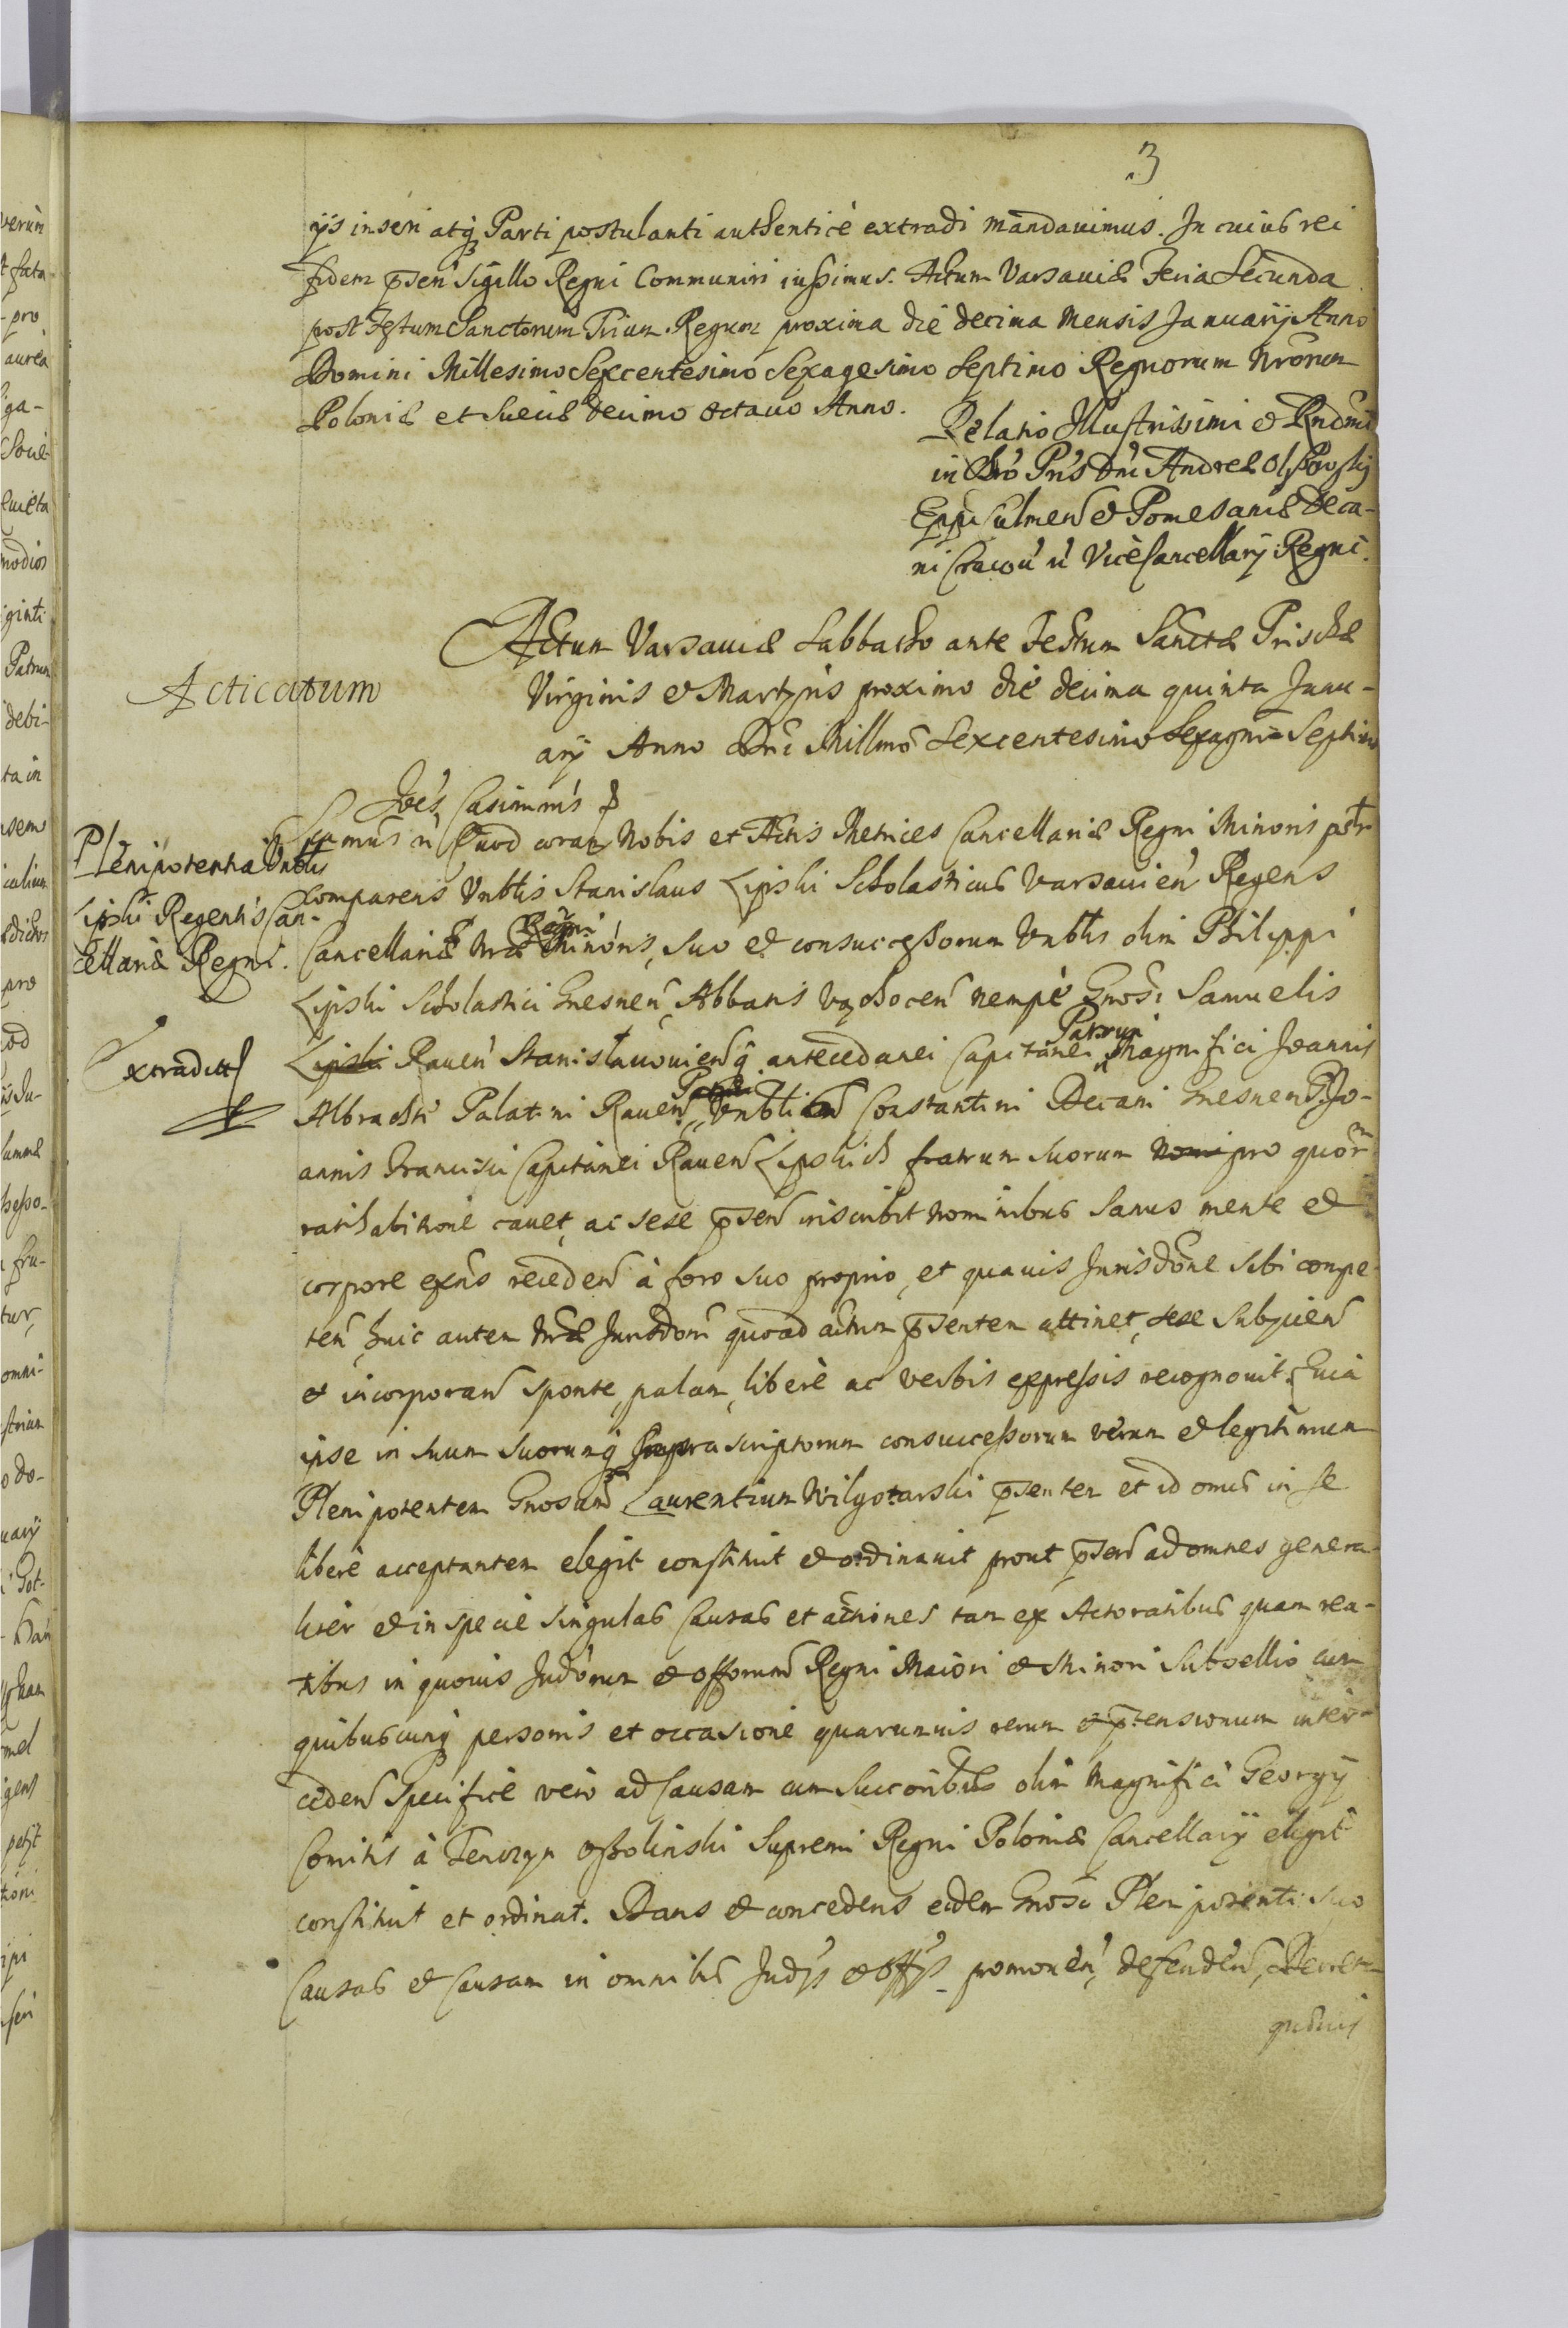 3
ijs inseri atq Parti postulanti authenticè extradi mandauimus. In cuius rei
fidem psen Sigillo Regni Communiri iussimus. Actum Varsauiæ Feria Secunda
post Festum Sanctorum Trium Regum proxima die decima Mensis Januarij Anno
Domini Millesimo Sexcentesimo Sexagesimo Septimo Regnorum Nrorum
Poloniæ et Sueciæ decimo octauo Anno.
Relatio Illustrissimi et Rndmi
in Chro Pris Dni Andreæ Olszowski
Eppi Culmen et Pomesaniæ Deca-
ni Cracou n ViceCancellarij Regni.
Acticatum
Actum Varsauiæ Sabbatho ante Festum Sanctæ Priscæ
Virginis et Martyris proximo die decima quinta Janu-
arij Anno Dni Millmo Sexcentesimo Sexagmo Septimo
Joes Casimirus
Plenipotentia Vnblis
Lipski Regentis Can-
cellariæ Regni.
Extradit
mus n Quod coram Nobis et Actis Metrices Cancellariæ Regni Minoris
Comparens Vnblis Stanislaus Lipski Scholasticus Varsauien Regens
Cancellariæ Nræ Regni Minoris, suo et consuccessorum Vnblis olim Philippi
Lipski Scholastici Gnesnen, Abbatis Vąchocen nempè Gnosi Samuelis
Lipski Rauen Stanisławouien q antecedanei Capitanei Patrui Magnifici Joannis
Albrachti Palatini Rauen, Vnbli Constantini Decani Gnesnen Jo-
annis Francisci Capitanei Rauen Lipskich fratrum suorum pro quor
ratihabitione cauet, ac sese psen inscribit nominibus sanus mente et
corpore exns receden à foro suo proprio, et quauis Jurisdone sibi compe-
ten, huic autem Nræ Jurisdoni quoad actum psentem attinet, sese Subijcien
et incorporan sponte, palam, liberè ac verbis expressis recognouit. Quia
ipse in suum suorumq suprascriptorum consuccessorum verum et legitimum
Plenipotentem Gnosum Laurentium Wilgotarski psentem et id onus in se
liberè acceptantem elegit constituit et ordinauit prout psen ad omnes genera-
liter et in specie singulas Causas et actiones tam ex Actoratibus quam rea-
tibus in quouis Judorum et offorum Regni Maiori et Minori Subsellio cum
quibuscunq personis et occasione quarumuis rerum et ptensionum inter-
ceden Specificè verò ad Causam cum Succoribus olim Magnifici Georgij
Comitis à Tenczyn Ossolinski Supremi Regni Poloniæ Cancellarij elegit
constituit et ordinat. Dans et concedens eidem Gnoso Plenipotenti suo
Causas et Causam in omnibus Judijs et offijs promouen, defenden, Decreta
quæuis